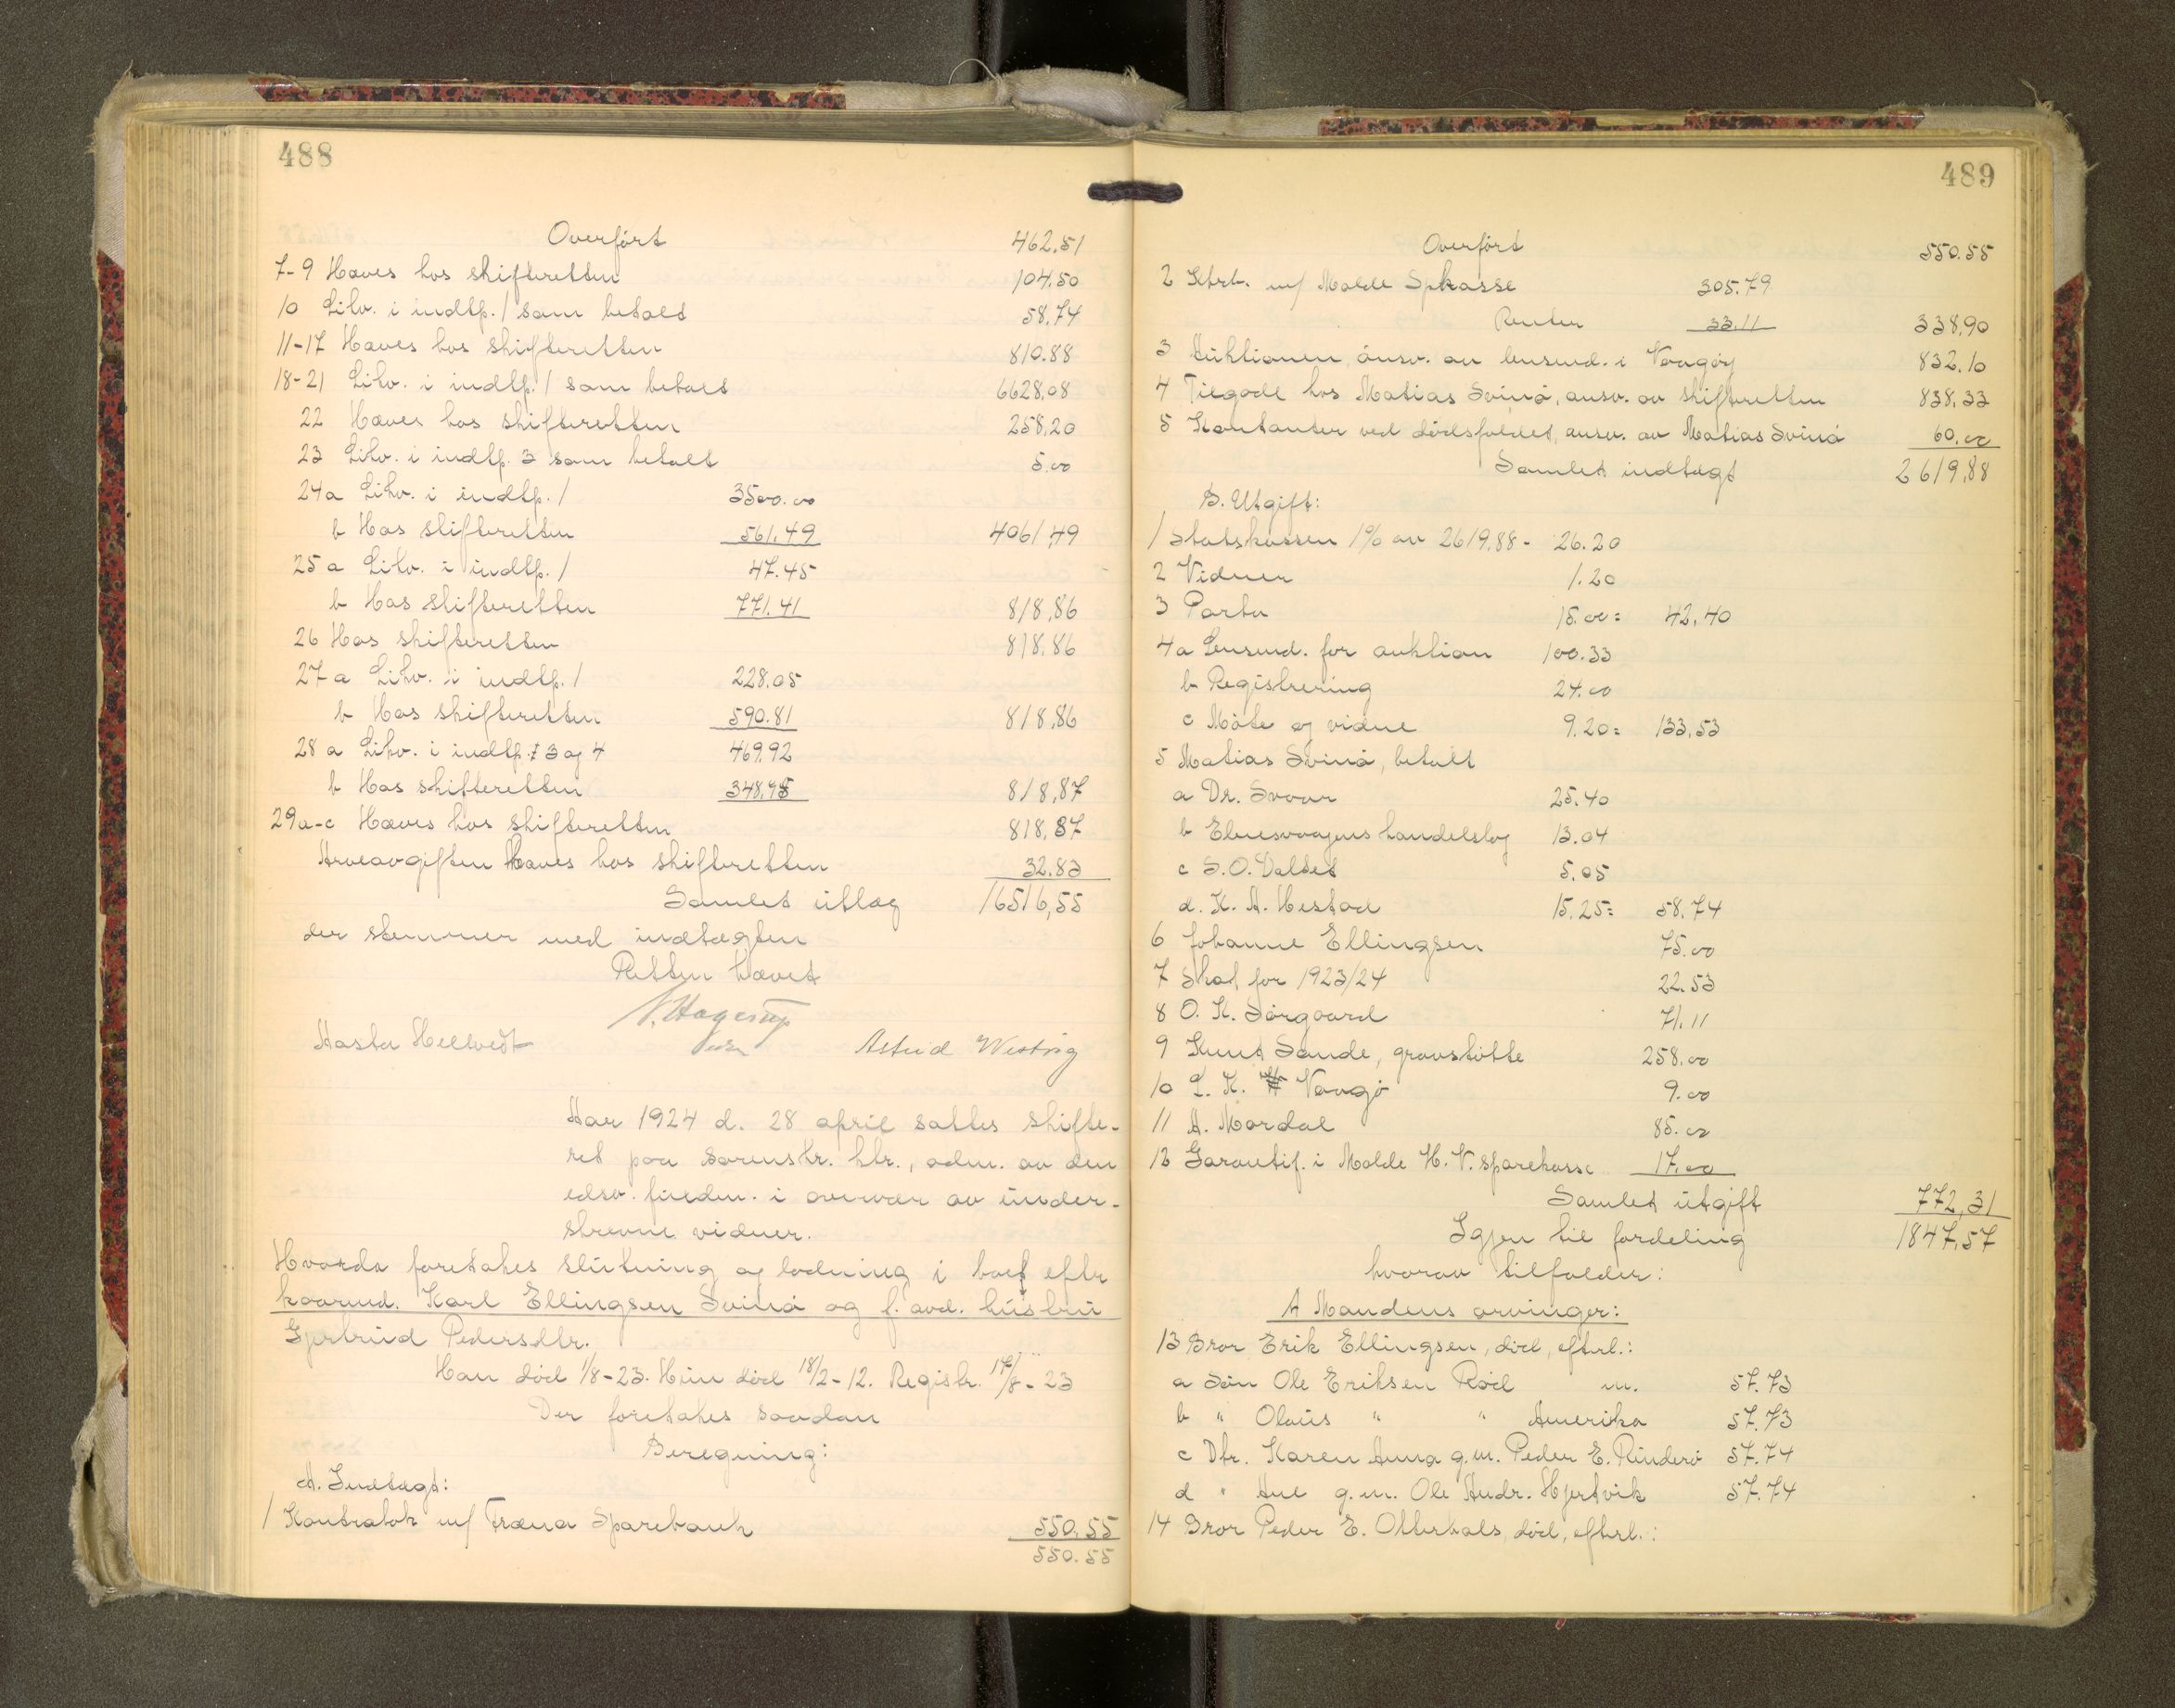 488
Overført 462.51
7-9 Hæves hos skifteretten 104.50
10 Likv. i indtp. 1 som betalt 58.74
11-17 Hæves hos skifteretten 810.88
18-21 Likv. i indtp. 1 som betalt 6628.08
22 Hæves hos skifteretten 258.20
23 Likv. i indtp. 3 som betalt 5.00
24a Likv. i indtp. 1 3500.00
b Hos skifteretten 561.49 4061,49
25a Likv. i indtp. 1 47.45
b Hos skifteretten 771.41 818,86
26 Hos skifteretten 818.86
27a Likv. i indtp. 1 228.05
b Hos skifteretten 590.81 818,86
28a Likv. i indtp. 1 3 og 4 469.92
b Hos skifteretten 348.95 818,87
29a-c Hæves hos skifteretten 818,87
Arveavgiften hæves hos skifteretten 32.83
Samlet utlæg 16516,55
der stemmer med indtægten
Retten hævet
N. Hagerup
Aasta Hellvedt Astrid Westvig
Aar 1924 d. 28 april sattes skifte-
ret paa sorenskr. ktr., adm. av den
edsv. fuldm. i overvær av under-
skrevne vidner.
Hvorda foretakes slutning og lodning i boet efter
kaarmd. Karl Ellingsen Svinø og f. avd. hustru
Gjertrud Pedersdtr.
Han død 1/8-23. Hun død 18/2-12. Registr. 17/8-23
Der foretakes saadan
Beregning:
A. Indtægt:
1 Kontrabok m/ Fræna Sparebank 550,55
550.55
489
Overført 550.55
2 Ktrb. m/ Molde Spkasse 305.79
Renter 33.11 338,90
3 Auktionen, ansv. av lensmd. i Vaagøy 832.10
4 Tilgode hos Matias Svinø, ansv. av skifteretten 838,33
5 Kontanter ved dødsfaldet, ansv. av Matias Svinø 60.00
Samlet indtægt 2619,88
B. Utgift:
1 Statskassen 1% av 2619,88 - 26.20
2 Vidner 1.20
3 Porto 15.00 = 42,40
4a Lensmd. for auktion 100.33
b Registrering 24.00
c Møte og vidne 9.20 = 133,53
5 Matias Svinø, betalt
a Dr. Svaar 25.40
b Elnesvaagens handelslag 13.04
c S.O. Valset 5.05
d. K. A. Hestad 15.25 = 58,74
6 Johanne Ellingsen 75.00
7 Skat for 1923/24 22.53
8 O. K. Sørgaard 71.11
9 Knut Sande, gravstøtte 258.00
10 L. K. Vaagø 9.00
11 A. Mordal 85.00
12 Garantif. i Molde H. V. sparekasse 17.00
Samlet utgift 772,31
Igjen til fordeling 1847,57
hvorav tilfalder:
A Mandens arvinger:
13 Bror Erik Ellingsen, død, efterl.:
a Søn Ole Eriksen Rød m. 57.73
b " Olaus " " Amerika 57.73
c Dtr. Karen Anna g.m. Peder E. Rinderø 57.74
d " Ane g.m. Ole Andr. Hjertvik 57.74
14 Bror Peder E. Otterhals, død, efterl.: